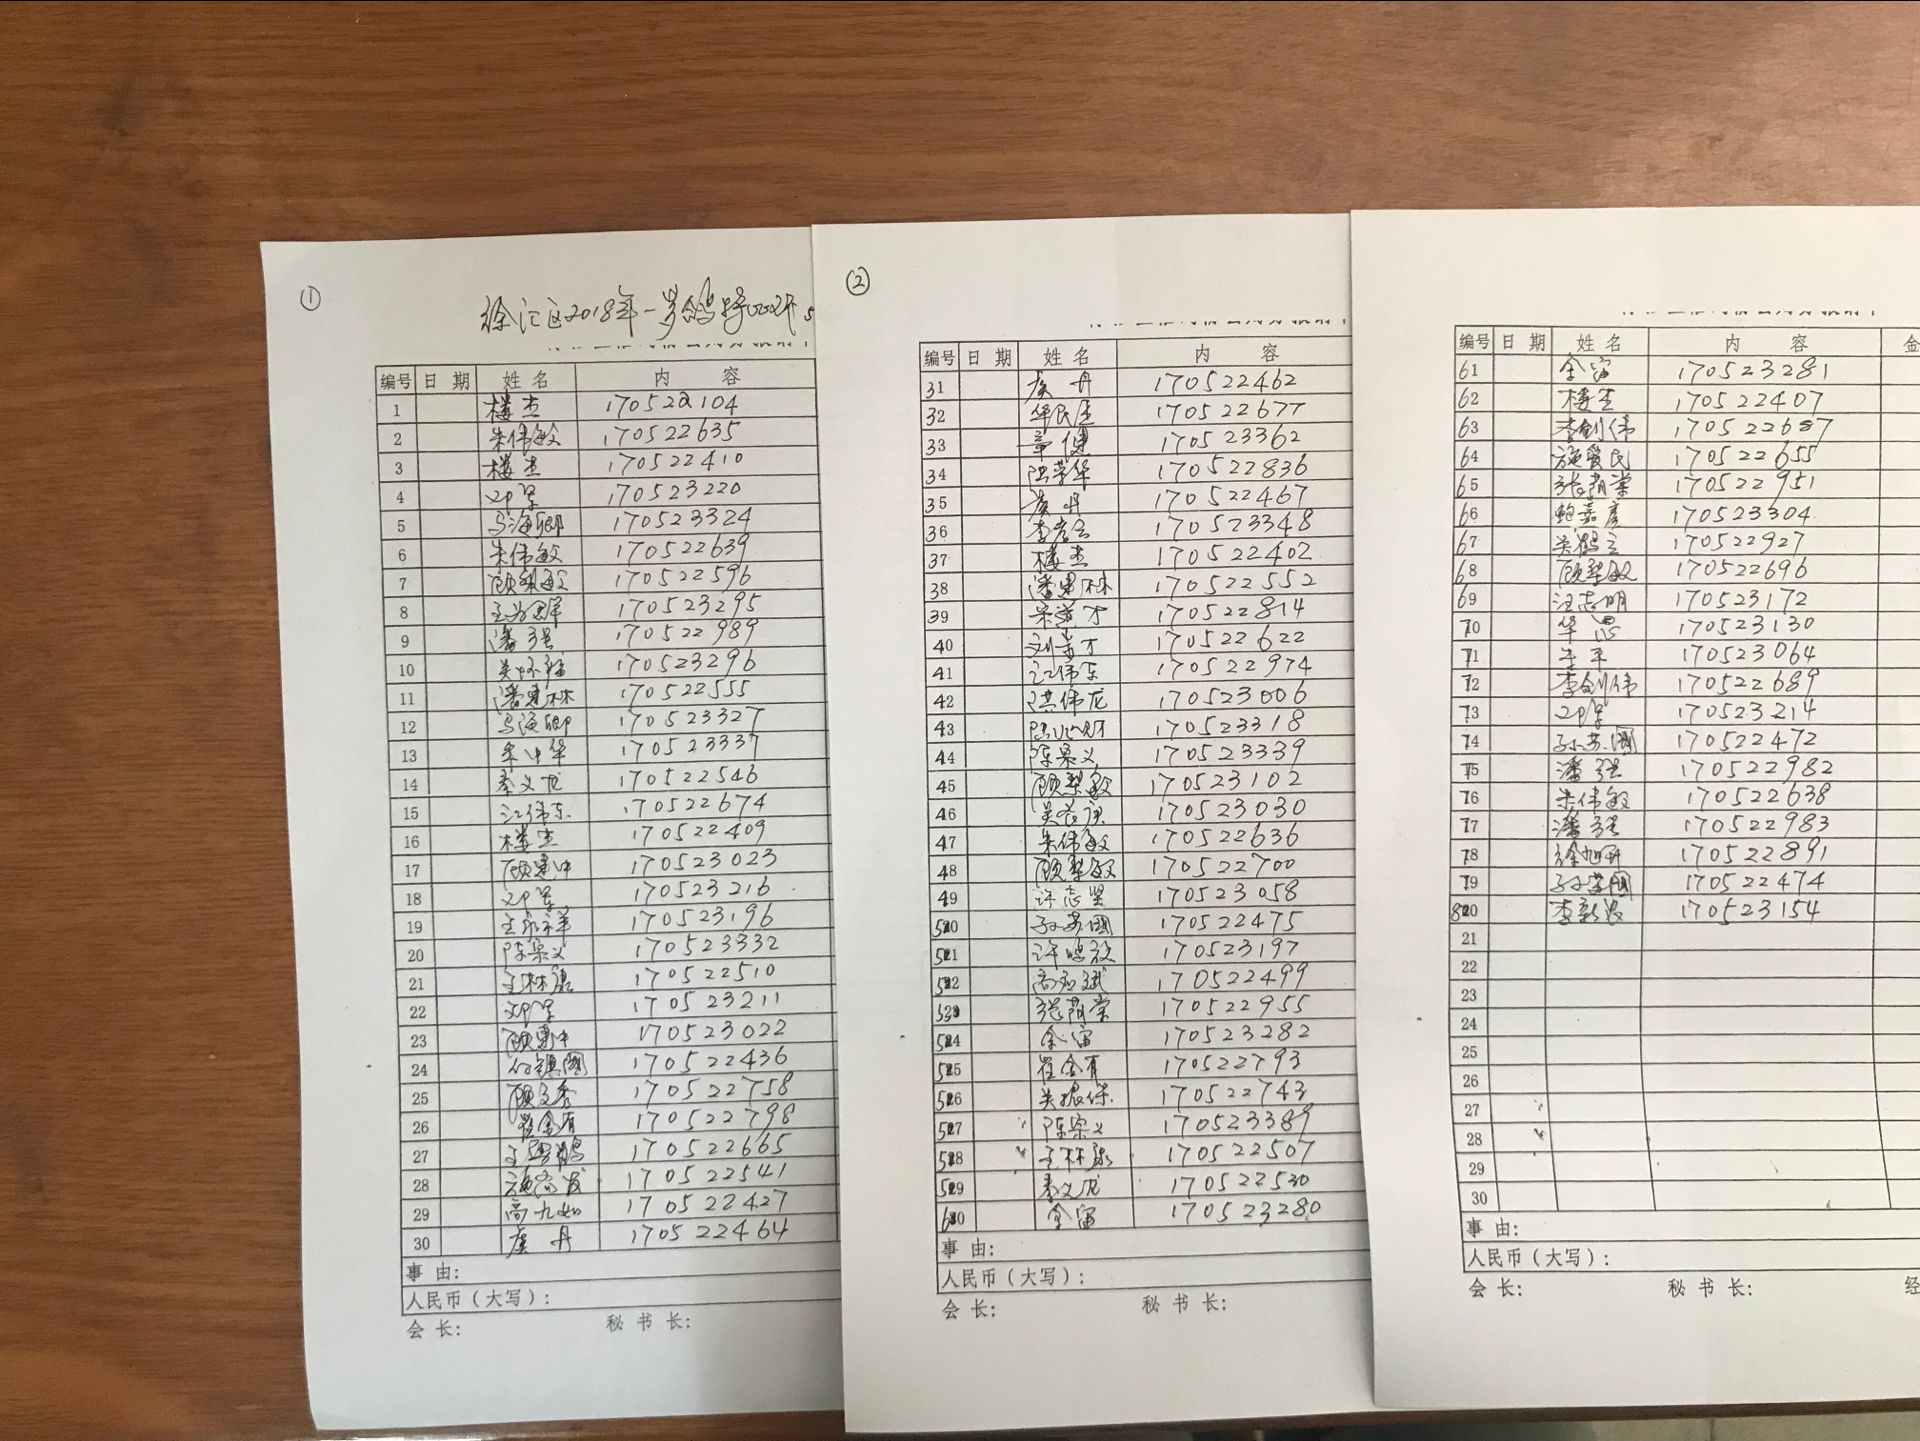 ①
徐汇区2018年一岁鸽
编号 日 期 姓 名 内 容
1 楼杰 170522104
2 朱伟敏 170522635
3 楼杰 170522410
4 170523220
5 马海卿 170523324
6 朱伟敏 170522639
7 顾黎敏 170522596
8 170523295
9 潘强 170522989
10 170523296
11 潘惠林 170522555
12 马海卿 170523327
13 牟中华 170523337
14 秦义龙 170522546
15 江伟东 170522674
16 楼杰 170522409
17 顾惠中 170523023
18 170523216
19 王永祥 170523196
20 陈宗义 170523332
21 王林康 170522510
22 170523211
23 顾惠中 170523022
24 何镇国 170522436
25 顾文秀 170522758
26 崔金有 170522798
27 170522665
28 170522541
29 高九如 170522427
30 虞丹 170522464
事 由:
人民币(大写):
会 长: 秘 书 长:
②
编号 日 期 姓 名 内 容
31 虞丹 170522462
32 华民 170522677
33 章健 170523362
34 洪荣华 170522836
35 虞丹 170522467
36 170523348
37 楼杰 170522402
38 潘惠林 170522552
39 170522814
40 170522622
41 江伟东 170522974
42 洪伟龙 170523006
43 170523318
44 陈宗义 170523339
45 顾黎敏 170523102
46 170523030
47 朱伟敏 170522636
48 顾黎敏 170522700
49 许志坚 170523058
50 孙苏国 170522475
51 许鸣放 170523197
52 170522499
53 张荫棠 170522955
54 金宙 170523282
55 崔金有 170522793
56 吴振保 170522743
57 陈宗义 170523389
58 王林康 170522507
59 秦义龙 170522530
60 金宙 170523280
事 由:
人民币(大写):
会 长: 秘 书 长:
编号 日 期 姓 名 内 容 金
61 金宙 170523281
62 楼杰 170522407
63 李剑伟 170522687
64 施爱民 170522655
65 张荫棠 170522951
66 鲍嘉彦 170523304
67 170522927
68 顾黎敏 170522696
69 汪志明 170523172
70 华恩 170523130
71 170523064
72 李剑伟 170522689
73 170523214
74 孙苏国 170522472
75 潘强 170522982
76 朱伟敏 170522638
77 潘强 170522983
78 170522891
79 孙苏国 170522474
80 170523154
21
22
23
24
25
26
27
28
29
30
事 由:
人民币(大写):
会 长: 秘 书 长: 经